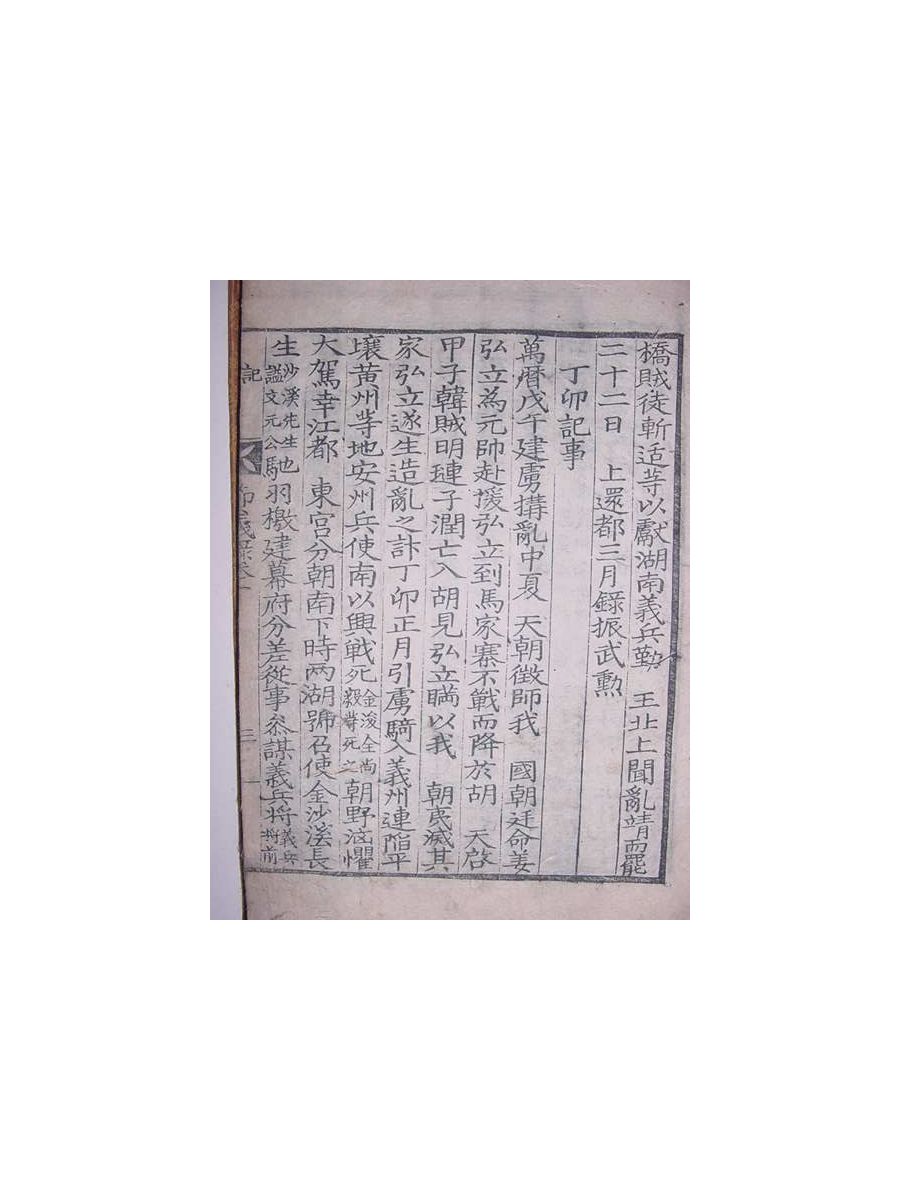 橋賊徒斬适等以獻湖南義兵勤 王北上聞亂靖而罷
二十二日 上還都三月錄振武勲
丁卯記事
萬暦戊午建虜搆亂中夏 天朝徴師我 國朝廷命姜
弘立為元帥赴援弘立到馬家寨不戰而降於胡 天啓
甲子韓賊明璉子潤亡入胡見弘立瞞以我 朝夷滅其
家弘立遂生造亂之計丁卯正月引虜騎入義州連陷平
壤黃州等地安州兵使南以興戰死金浚全尚毅等死之朝野洶懼
大駕幸江都 東宮分朝南下時两湖號召使金沙溪長
生沙溪先生謚文元公馳羽檄建幕府分差從事叅謀義兵將義兵將前
記
節義錄卷一
三